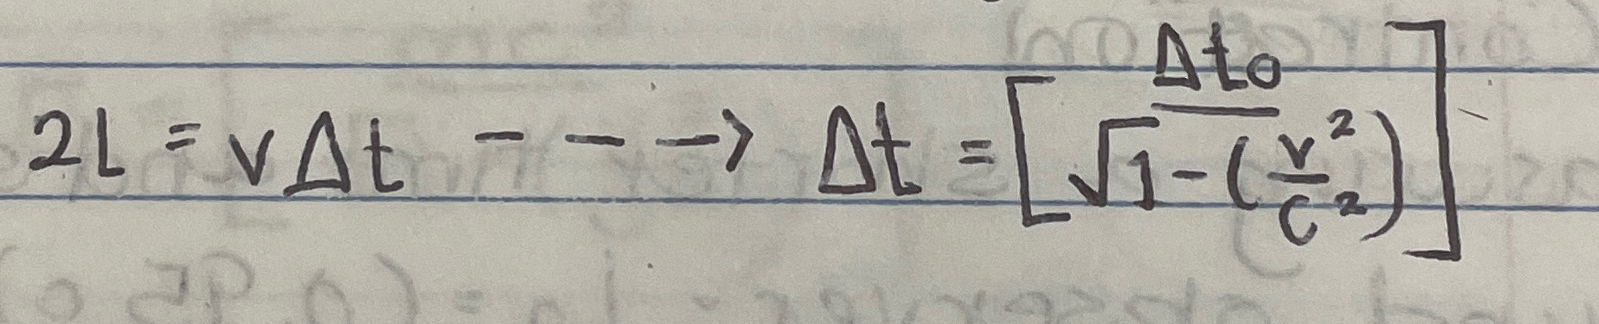 2L = v Δt - - -> Δt = [Δt₀ / √1 - (v²/c²)]